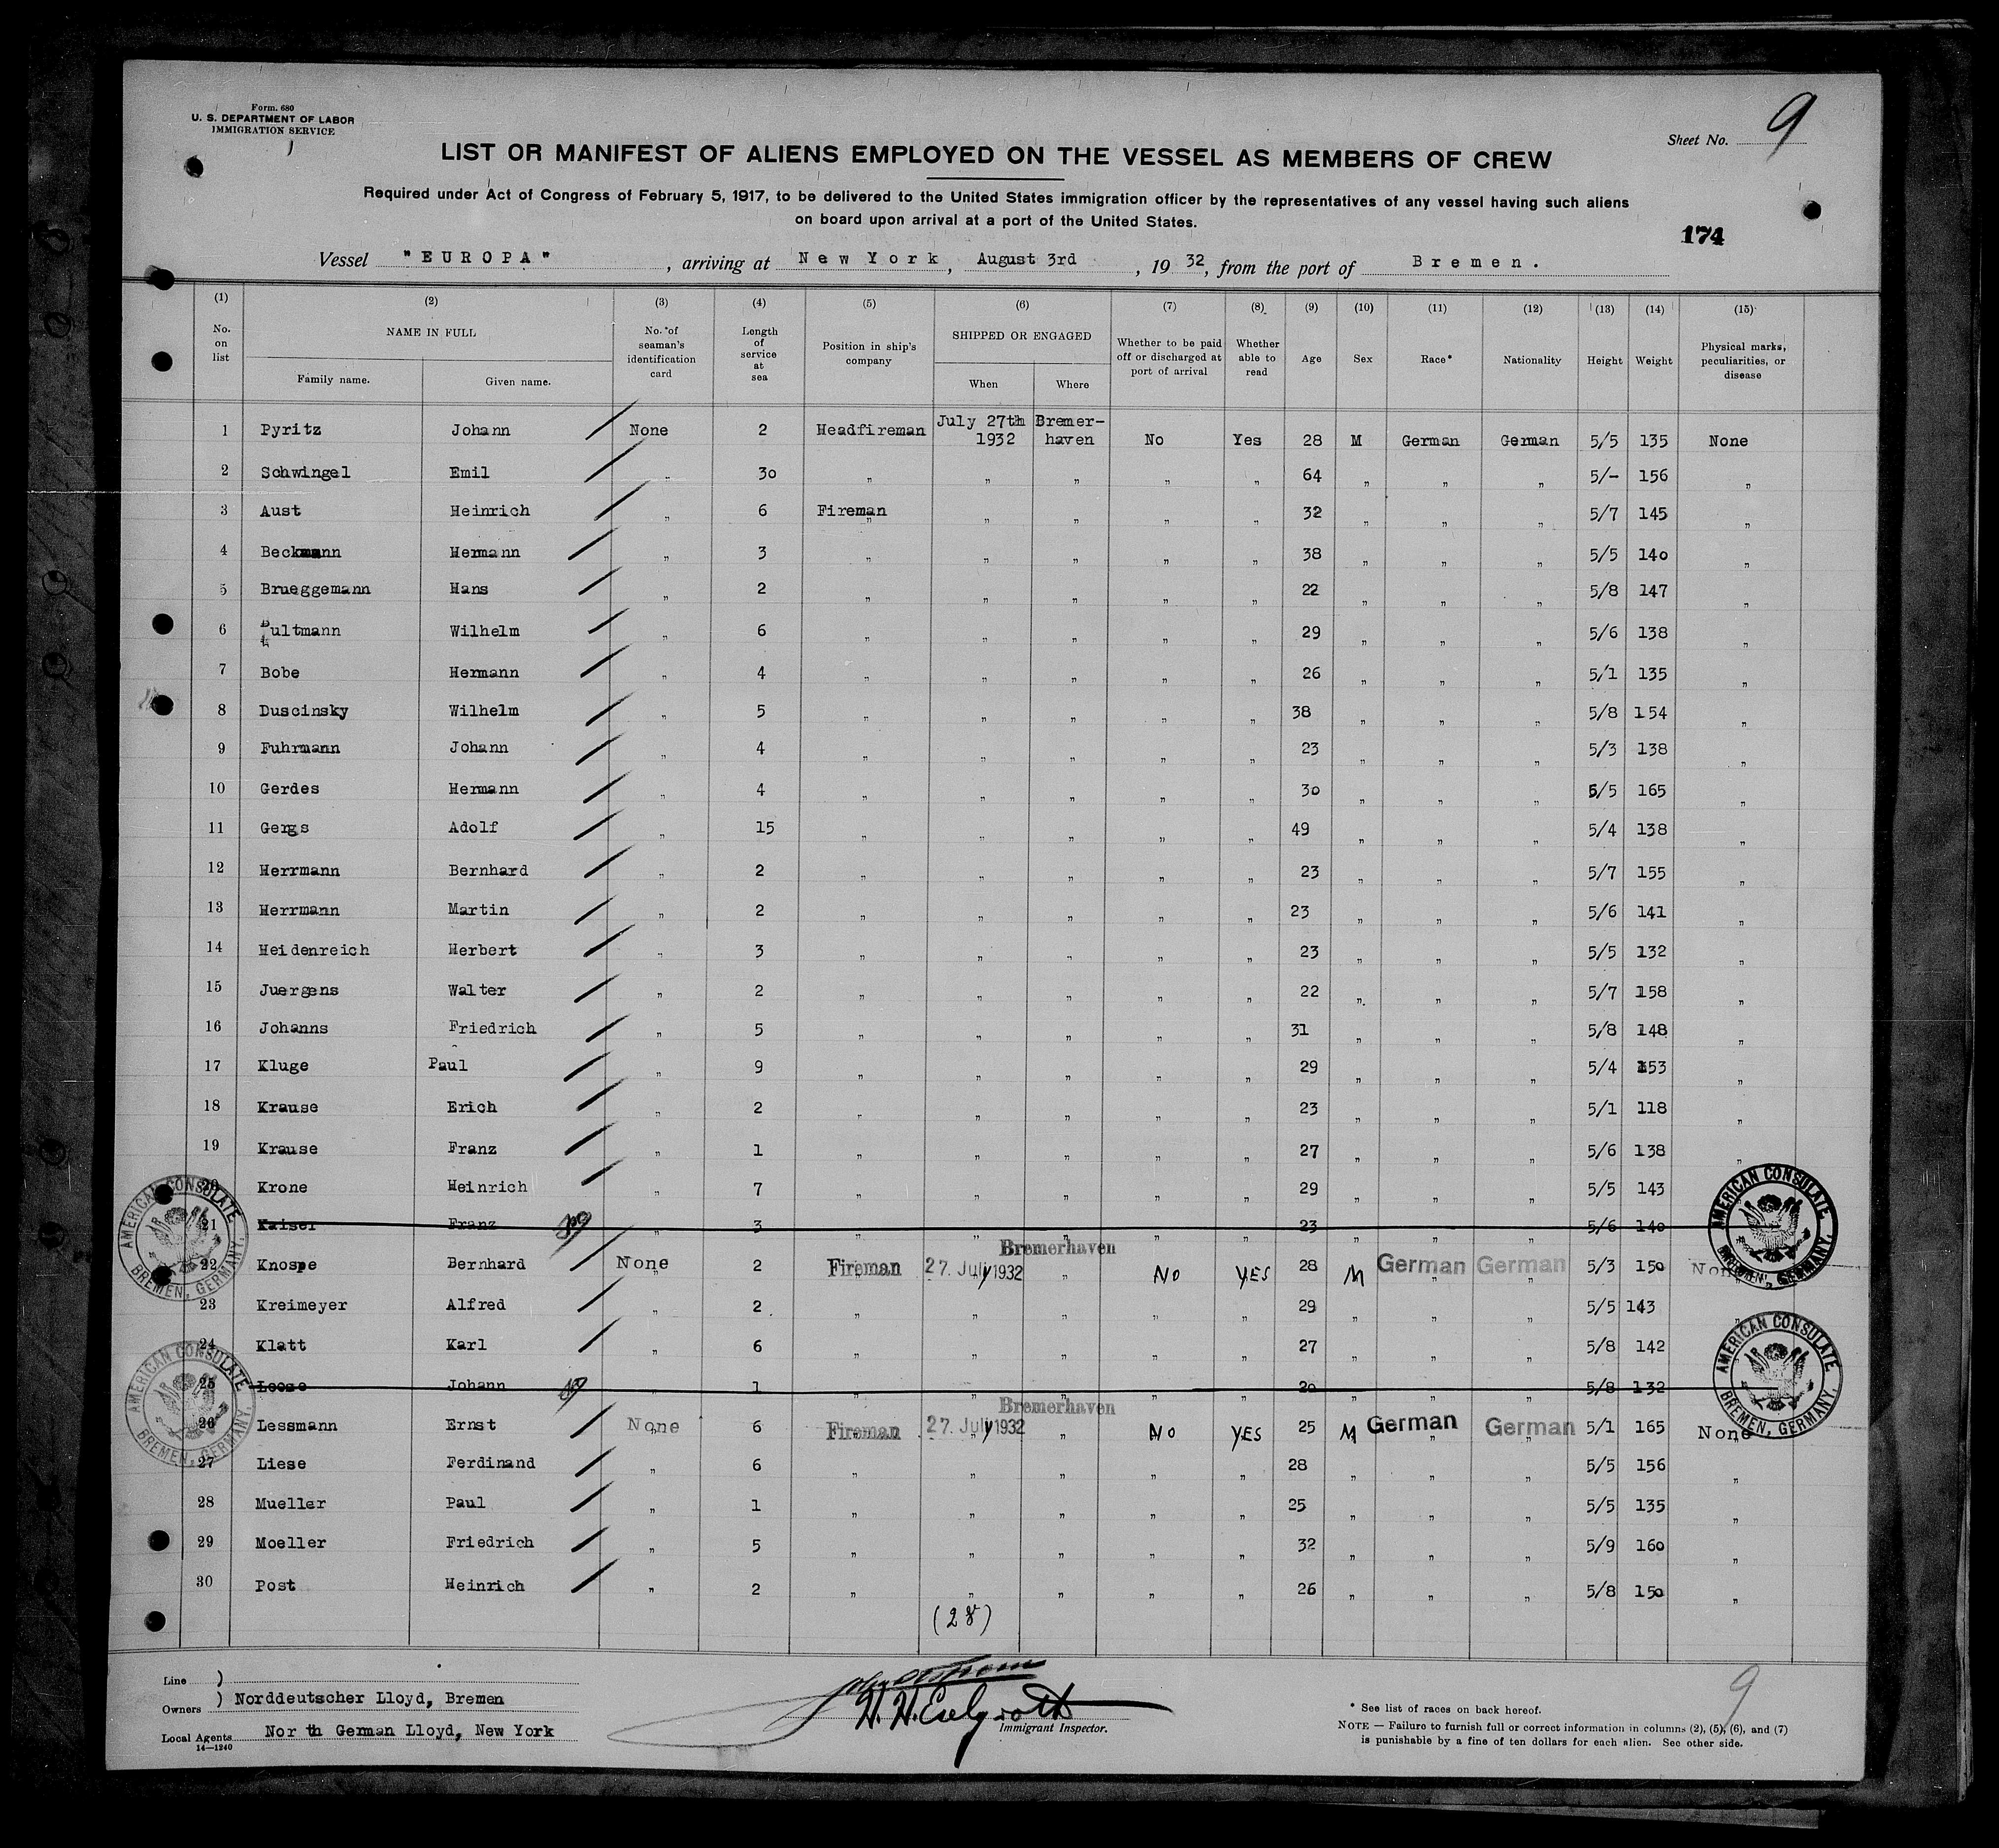 Form. 680
U. S. DEPARTMENT OF LABOR
IMMIGRATION SERVICE
Sheet No. 9
LIST OR MANIFEST OF ALIENS EMPLOYED ON THE VESSEL AS MEMBERS OF CREW
Required under Act of Congress of February 5, 1917, to be delivered to the United States immigration officer by the representatives of any vessel having such aliens
on board upon arrival at a port of the United States.
174
Vessel "EUROPA", arriving at New York, August 3rd, 1932, from the port of Bremen.
(1) (2) (3) (4) (5) (6) (7) (8) (9) (10) (11) (12) (13) (14) (15)
No. on list NAME IN FULL Family name. Given name. No. of seaman's identification card Length of service at sea Position in ship's company SHIPPED OR ENGAGED When Where Whether to be paid off or discharged at port of arrival Whether able to read Age Sex Race* Nationality Height Weight Physical marks, peculiarities, or disease
1 Pyritz Johann None 2 Headfireman July 27th 1932 Bremerhaven No Yes 28 M German German 5/5 135 None
2 Schwingel Emil " 30 " " " " " 64 " " " 5/- 156 "
3 Aust Heinrich " 6 Fireman " " " " 32 " " " 5/7 145 "
4 Beckmann Hermann " 3 " " " " " 38 " " " 5/5 140 "
5 Brueggemann Hans " 2 " " " " " 22 " " " 5/8 147 "
6 Bultmann Wilhelm " 6 " " " " " 29 " " " 5/6 138 "
7 Bobe Hermann " 4 " " " " " 26 " " " 5/1 135 "
8 Duscinsky Wilhelm " 5 " " " " " 38 " " " 5/8 154 "
9 Fuhrmann Johann " 4 " " " " " 23 " " " 5/3 138 "
10 Gerdes Hermann " 4 " " " " " 30 " " " 5/5 165 "
11 Gergs Adolf " 15 " " " " " 49 " " " 5/4 138 "
12 Herrmann Bernhard " 2 " " " " " 23 " " " 5/7 155 "
13 Herrmann Martin " 2 " " " " " 23 " " " 5/6 141 "
14 Heidenreich Herbert " 3 " " " " " 23 " " " 5/5 132 "
15 Juergens Walter " 2 " " " " " 22 " " " 5/7 158 "
16 Johanns Friedrich " 5 " " " " " 31 " " " 5/8 148 "
17 Kluge Paul " 9 " " " " " 29 " " " 5/4 153 "
18 Krause Erich " 2 " " " " " 23 " " " 5/1 118 "
19 Krause Franz " 1 " " " " " 27 " " " 5/6 138 "
20 Krone Heinrich " 7 " " " " " 29 " " " 5/5 143
21 Kaiser Franz " 3 " " " " " 23 " " " 5/6 140
22 Knospe Bernhard None 2 Fireman 27. July 1932 Bremerhaven No YES 28 M German German 5/3 150 None
23 Kreimeyer Alfred " 2 " " " " " 29 " " " 5/5 143 "
24 Klatt Karl " 6 " " " " " 27 " " " 5/8 142
25 Loose Johann " 1 " " " " " 20 " " " 5/8 132
26 Lessmann Ernst None 6 Fireman 27. July 1932 Bremerhaven No YES 25 M German German 5/1 165 None
27 Liese Ferdinand " 6 " " " " " 28 " " " 5/5 156 "
28 Mueller Paul " 1 " " " " " 25 " " " 5/5 135 "
29 Moeller Friedrich " 5 " " " " " 32 " " " 5/9 160 "
30 Post Heinrich " 2 " " " " " 26 " " " 5/8 150 "
(28)
AMERICAN CONSULATE BREMEN, GERMANY.
AMERICAN CONSULATE BREMEN, GERMANY.
AMERICAN CONSULATE BREMEN, GERMANY.
AMERICAN CONSULATE BREMEN, GERMANY.
Line )
Owners ) Norddeutscher Lloyd, Bremen
Local Agents North German Lloyd, New York
14—1240
Immigrant Inspector.
9
* See list of races on back hereof.
NOTE — Failure to furnish full or correct information in columns (2), (5), (6), and (7)
is punishable by a fine of ten dollars for each alien. See other side.